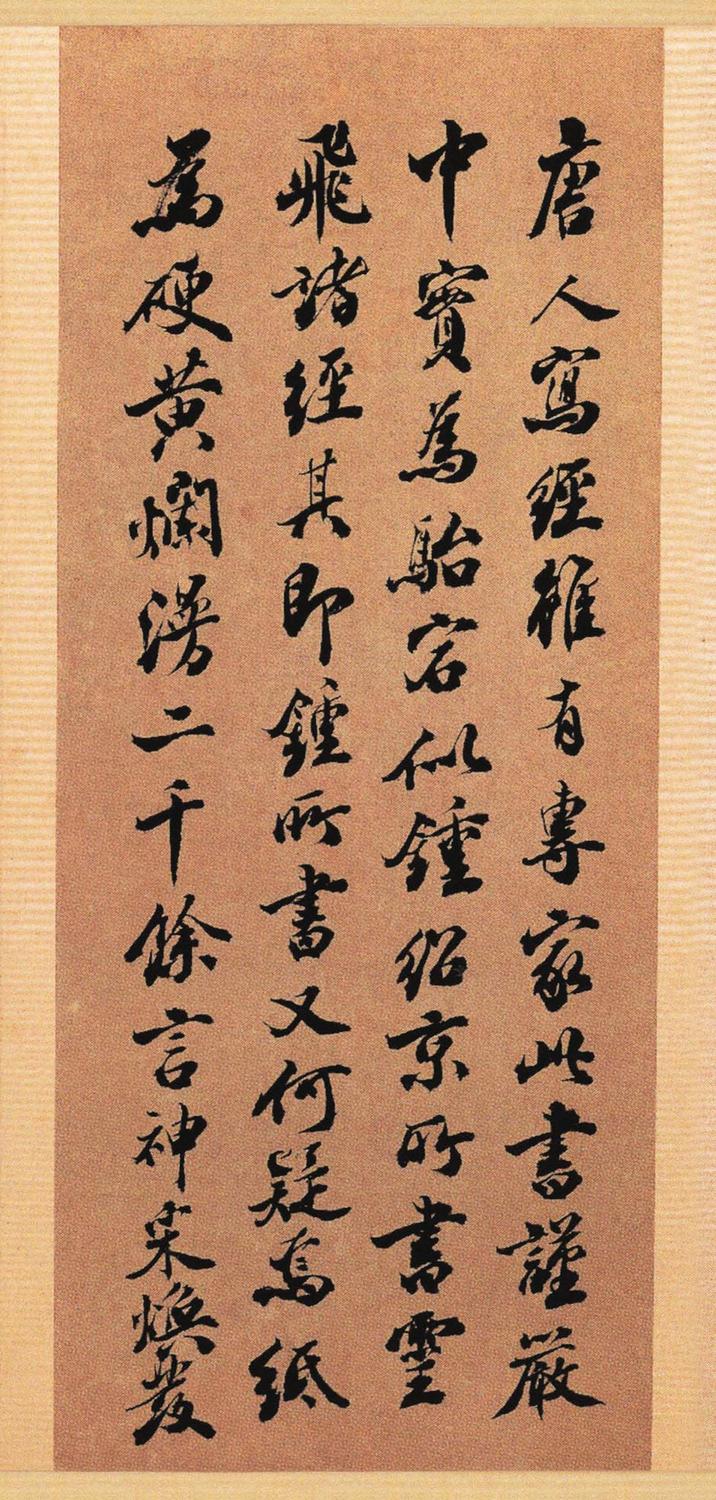 唐人寫經雖有專家此書謹嚴
中實為駘宕似鍾紹京所書靈
飛諸經其即鍾所書又何疑焉紙
為硬黃爛漫二千餘言神采煥發